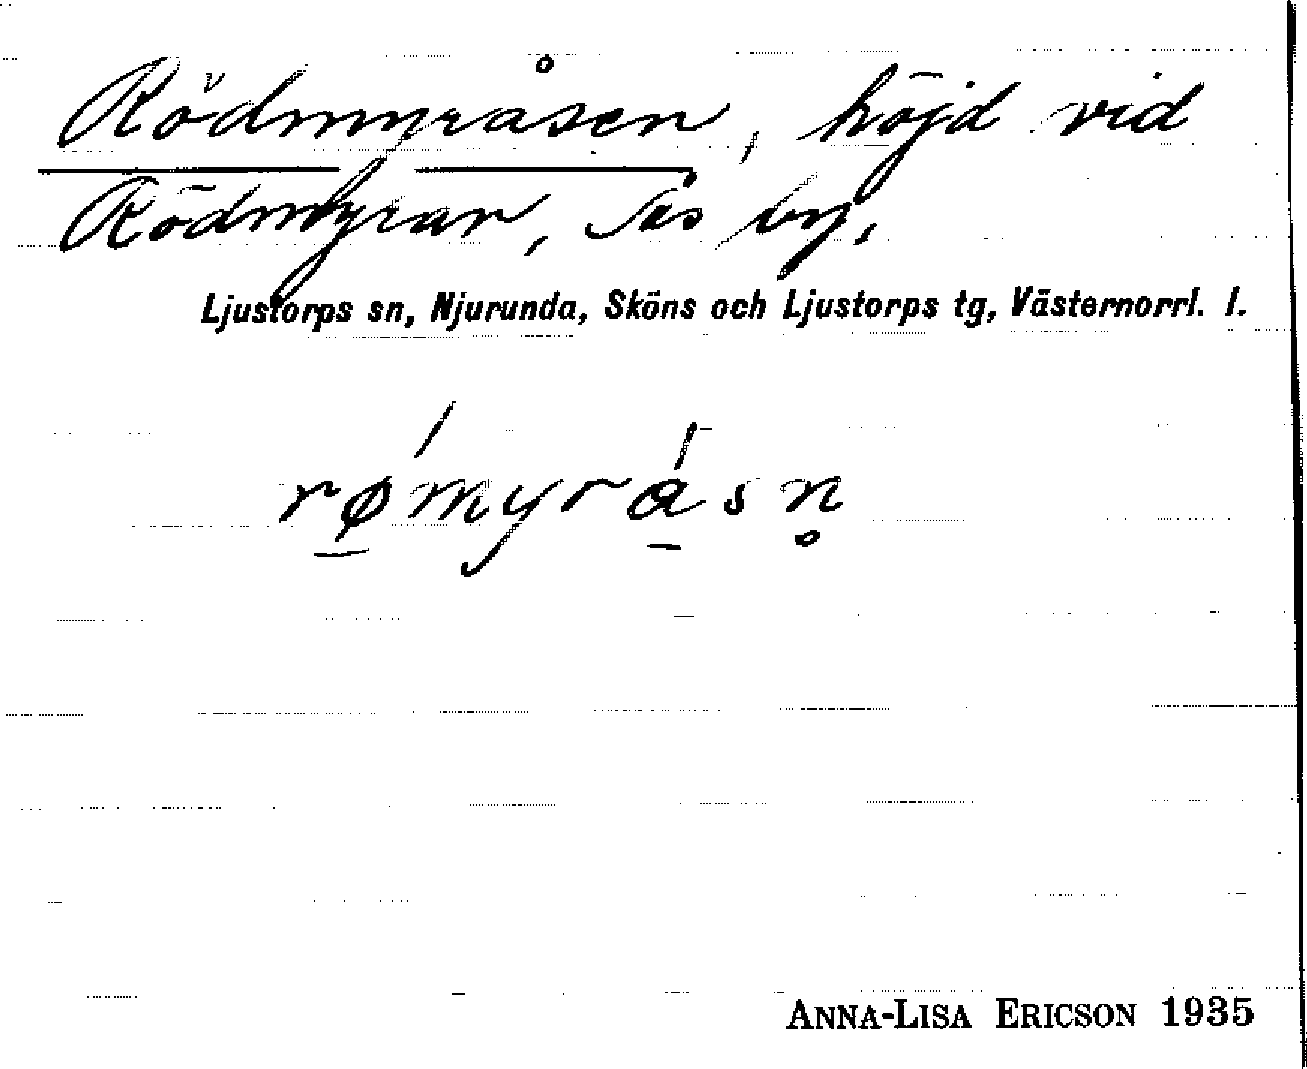 Rödmyråsen, höjd vid
Rödmyrar, Ås by.
Ljustorps sn, Njurunda, Sköns och Ljustorps tg, Västernorrl. l.
rǿ̲myrǻ̲sn̥
ANNA-LISA ERICSON 1935